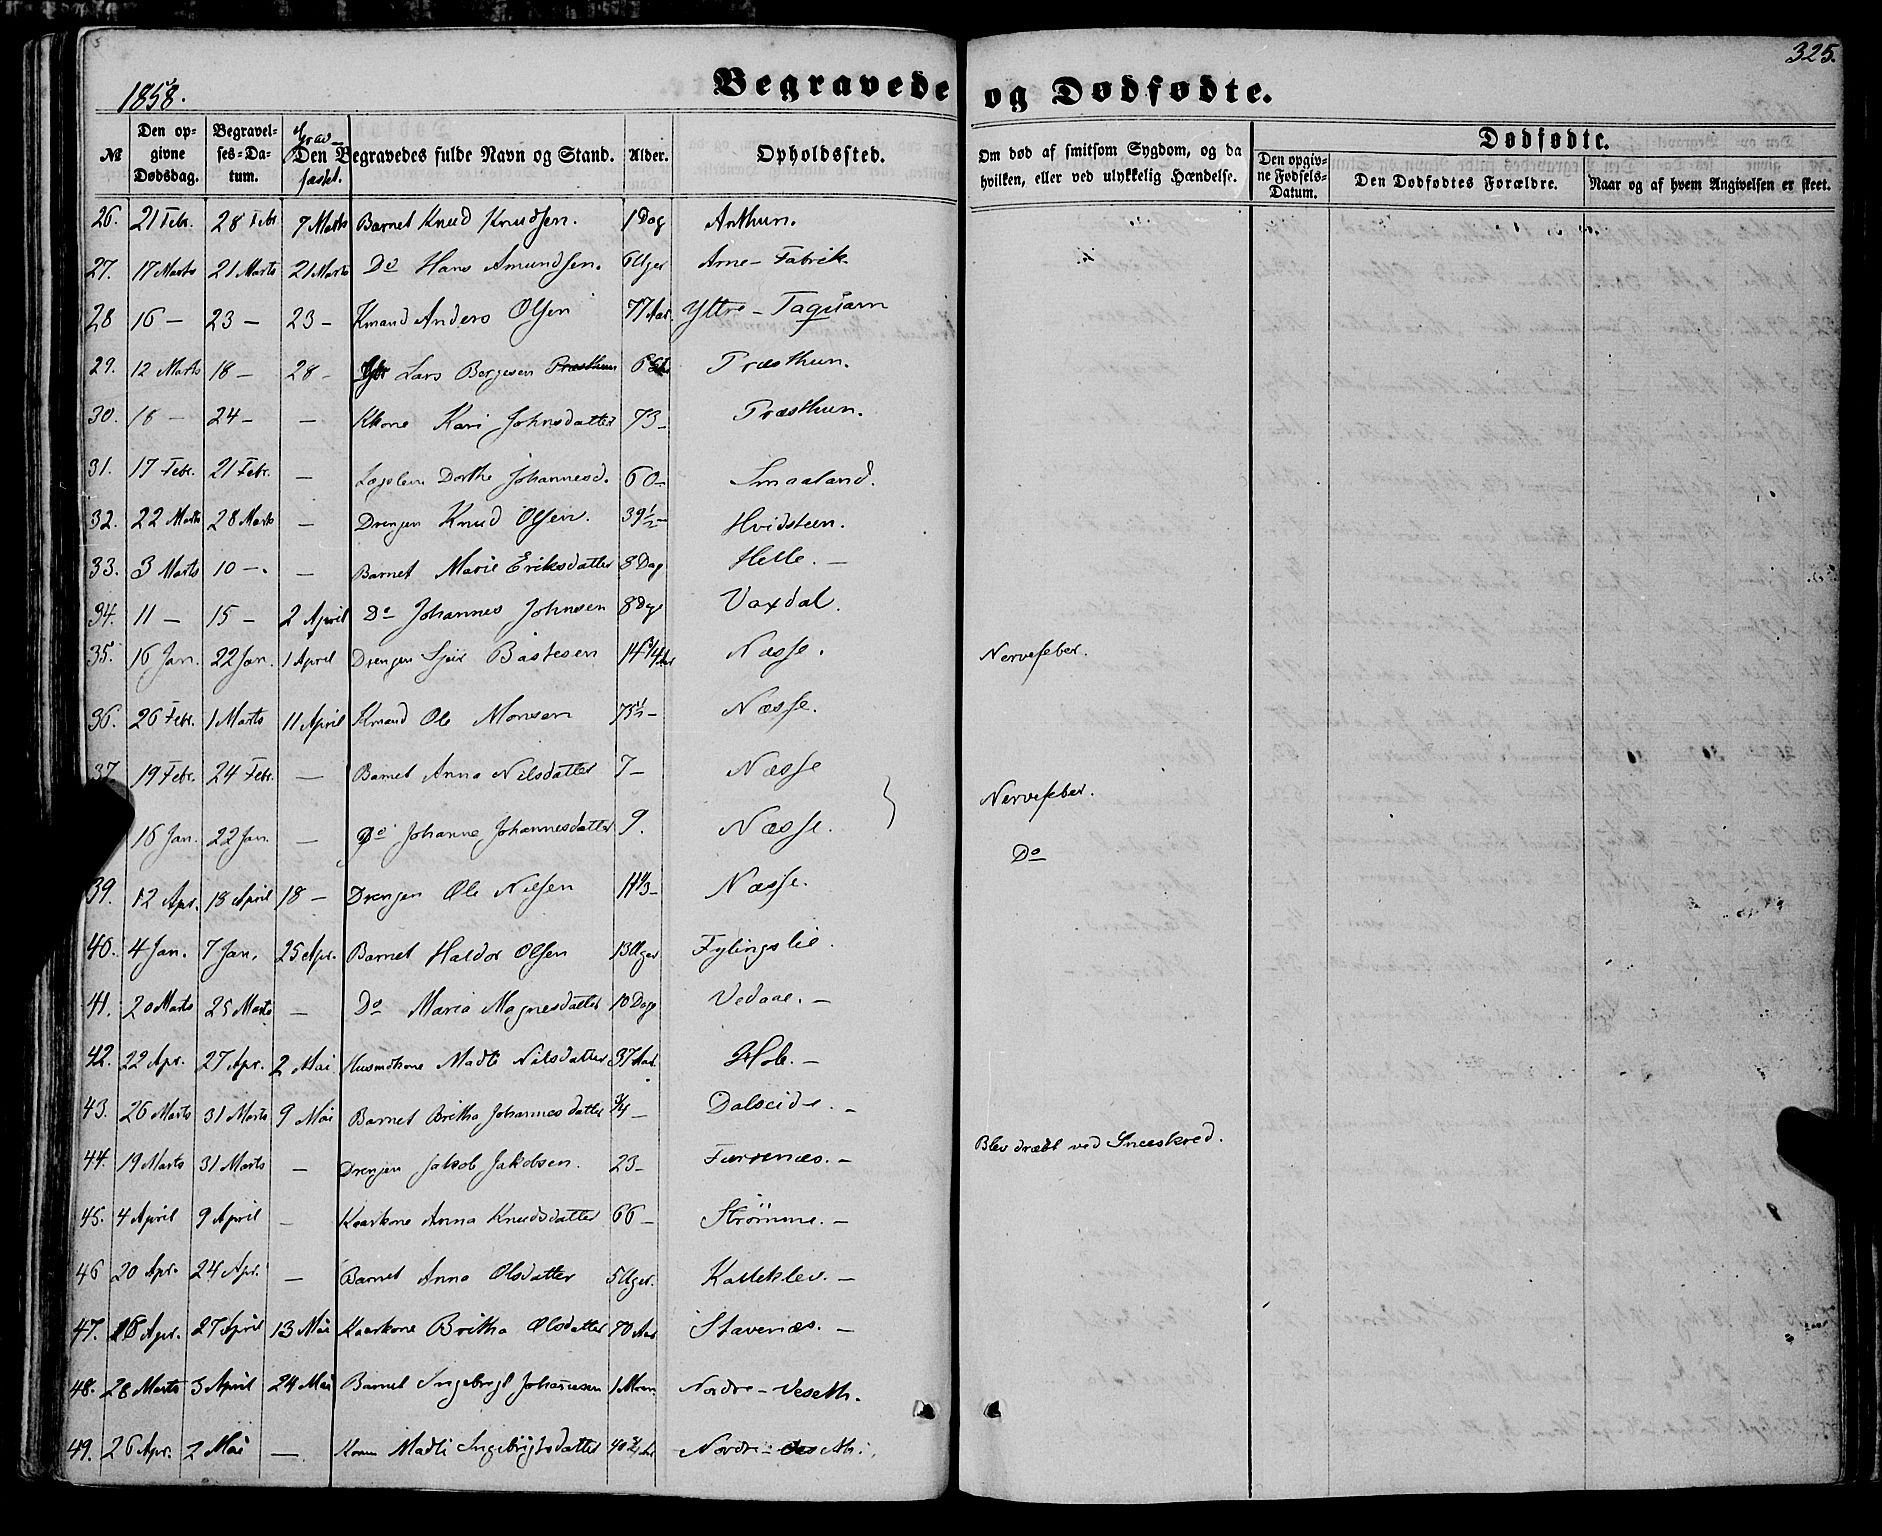 325.
1858.
Begravede og Dødfødte.
№ Den opgivne Dødsdag. Begravelses-Datum. Grav-fæstet. Den Begravedes fulde Navn og Stand. Alder. Opholdssted. Om død af smitsom Sygdom, og da hvilken, eller ved ulykkelig Hændelse. Dødfødte.
Den opgivne Fødsels-Datum. Den Dødfødtes Forældre. Naar og af hvem Angivelsen er skeet.
26. 21 Febr. 28 Febr 7 Marts Barnet Knud Knudsen. 1 Dag Arthun.
27. 17 Marts 21 Marts 21 Marts Do Hans Amundsen. 6 Uger Arne-Fabrik
28 16 — 23 — 23 — Kmand Anders Olsen 77 Aar Yttre-Taqvam
29. 12 Marts 18 — 28 — Lars Børgesen Præsthun Præsthun.
30. 18 — 24 — — Kkone Kari Johnsdatter 73 — Præsthun.
31. 17 Febr. 21 Febr. — Lægslem Dorthe Johannesd. 60 — Smaaland.
32. 22 Marts 28 Marts — Drengen Knud Olsen. 39½ — Hvidsteen.
33. 3 Marts 10 — — Barnet Marie Eriksdatter 8 Dag Helle. —
34. 11 — 15 — 2 April Do Johannes Johnsen 8 Dage Vaxdal.
35. 16 Jan. 22 Jan. 1 April Drengen Sjur Bastesen 14¾ Aar Næsse. Nervefeber.
36. 26 Febr. 1 Marts 11 April Kmand Ole Monsen 75½ — Næsse.
37 19 Febr. 24 Febr. — Barnet Anna Nilsdatter 7 — Næsse Nervefeber.
16 Jan. 22 Jan. — Do Johanna Johannesdatter 9. Næsse. Do
39. 12 Apr. 18 April 18 — Drengen Ole Nilsen Næsse.
40. 4 Jan. 7 Jan. 25 Apr. Barnet Haldor Olsen 13 Uger Fylingslie.
41. 20 Marts 25 Marts — Do Maria Magnesdatter 10 Dage Vedaae. —
42. 22 Apr. 27 Apr. 2 Mai Husmdkone Madli Nilsdatter 37 Aar Hole. —
43. 26 Marts 31 Marts 9 Mai Barnet Britha Johannesdatter ¾ — Dalseide. —
44. 19 Marts 31 Marts — Drengen Jakob Jakobsen. 23 — Furrenæs. — Blev dræbt ved Sneeskred.
45. 4 April 9 April — Kaarkone Anna Knudsdatter 66 — Strømme. —
46 20 Apr. 24 Apr. — Barnet Anna Olsdatter 5 Uger. Kalleklev. —
47. 18 Apr. 27 April 13 Mai Kaarkone Britha Olsdatter 70 Aar Stavenæs. —
48. 28 Marts 3 April 24 Mai Barnet Ingebrigt Johannesen 1 Maan. Nordre-Veseth.
49. 26 Apr. 2 Mai — Konen Madli Ingebrigtsdatter Nordre-Veseth.